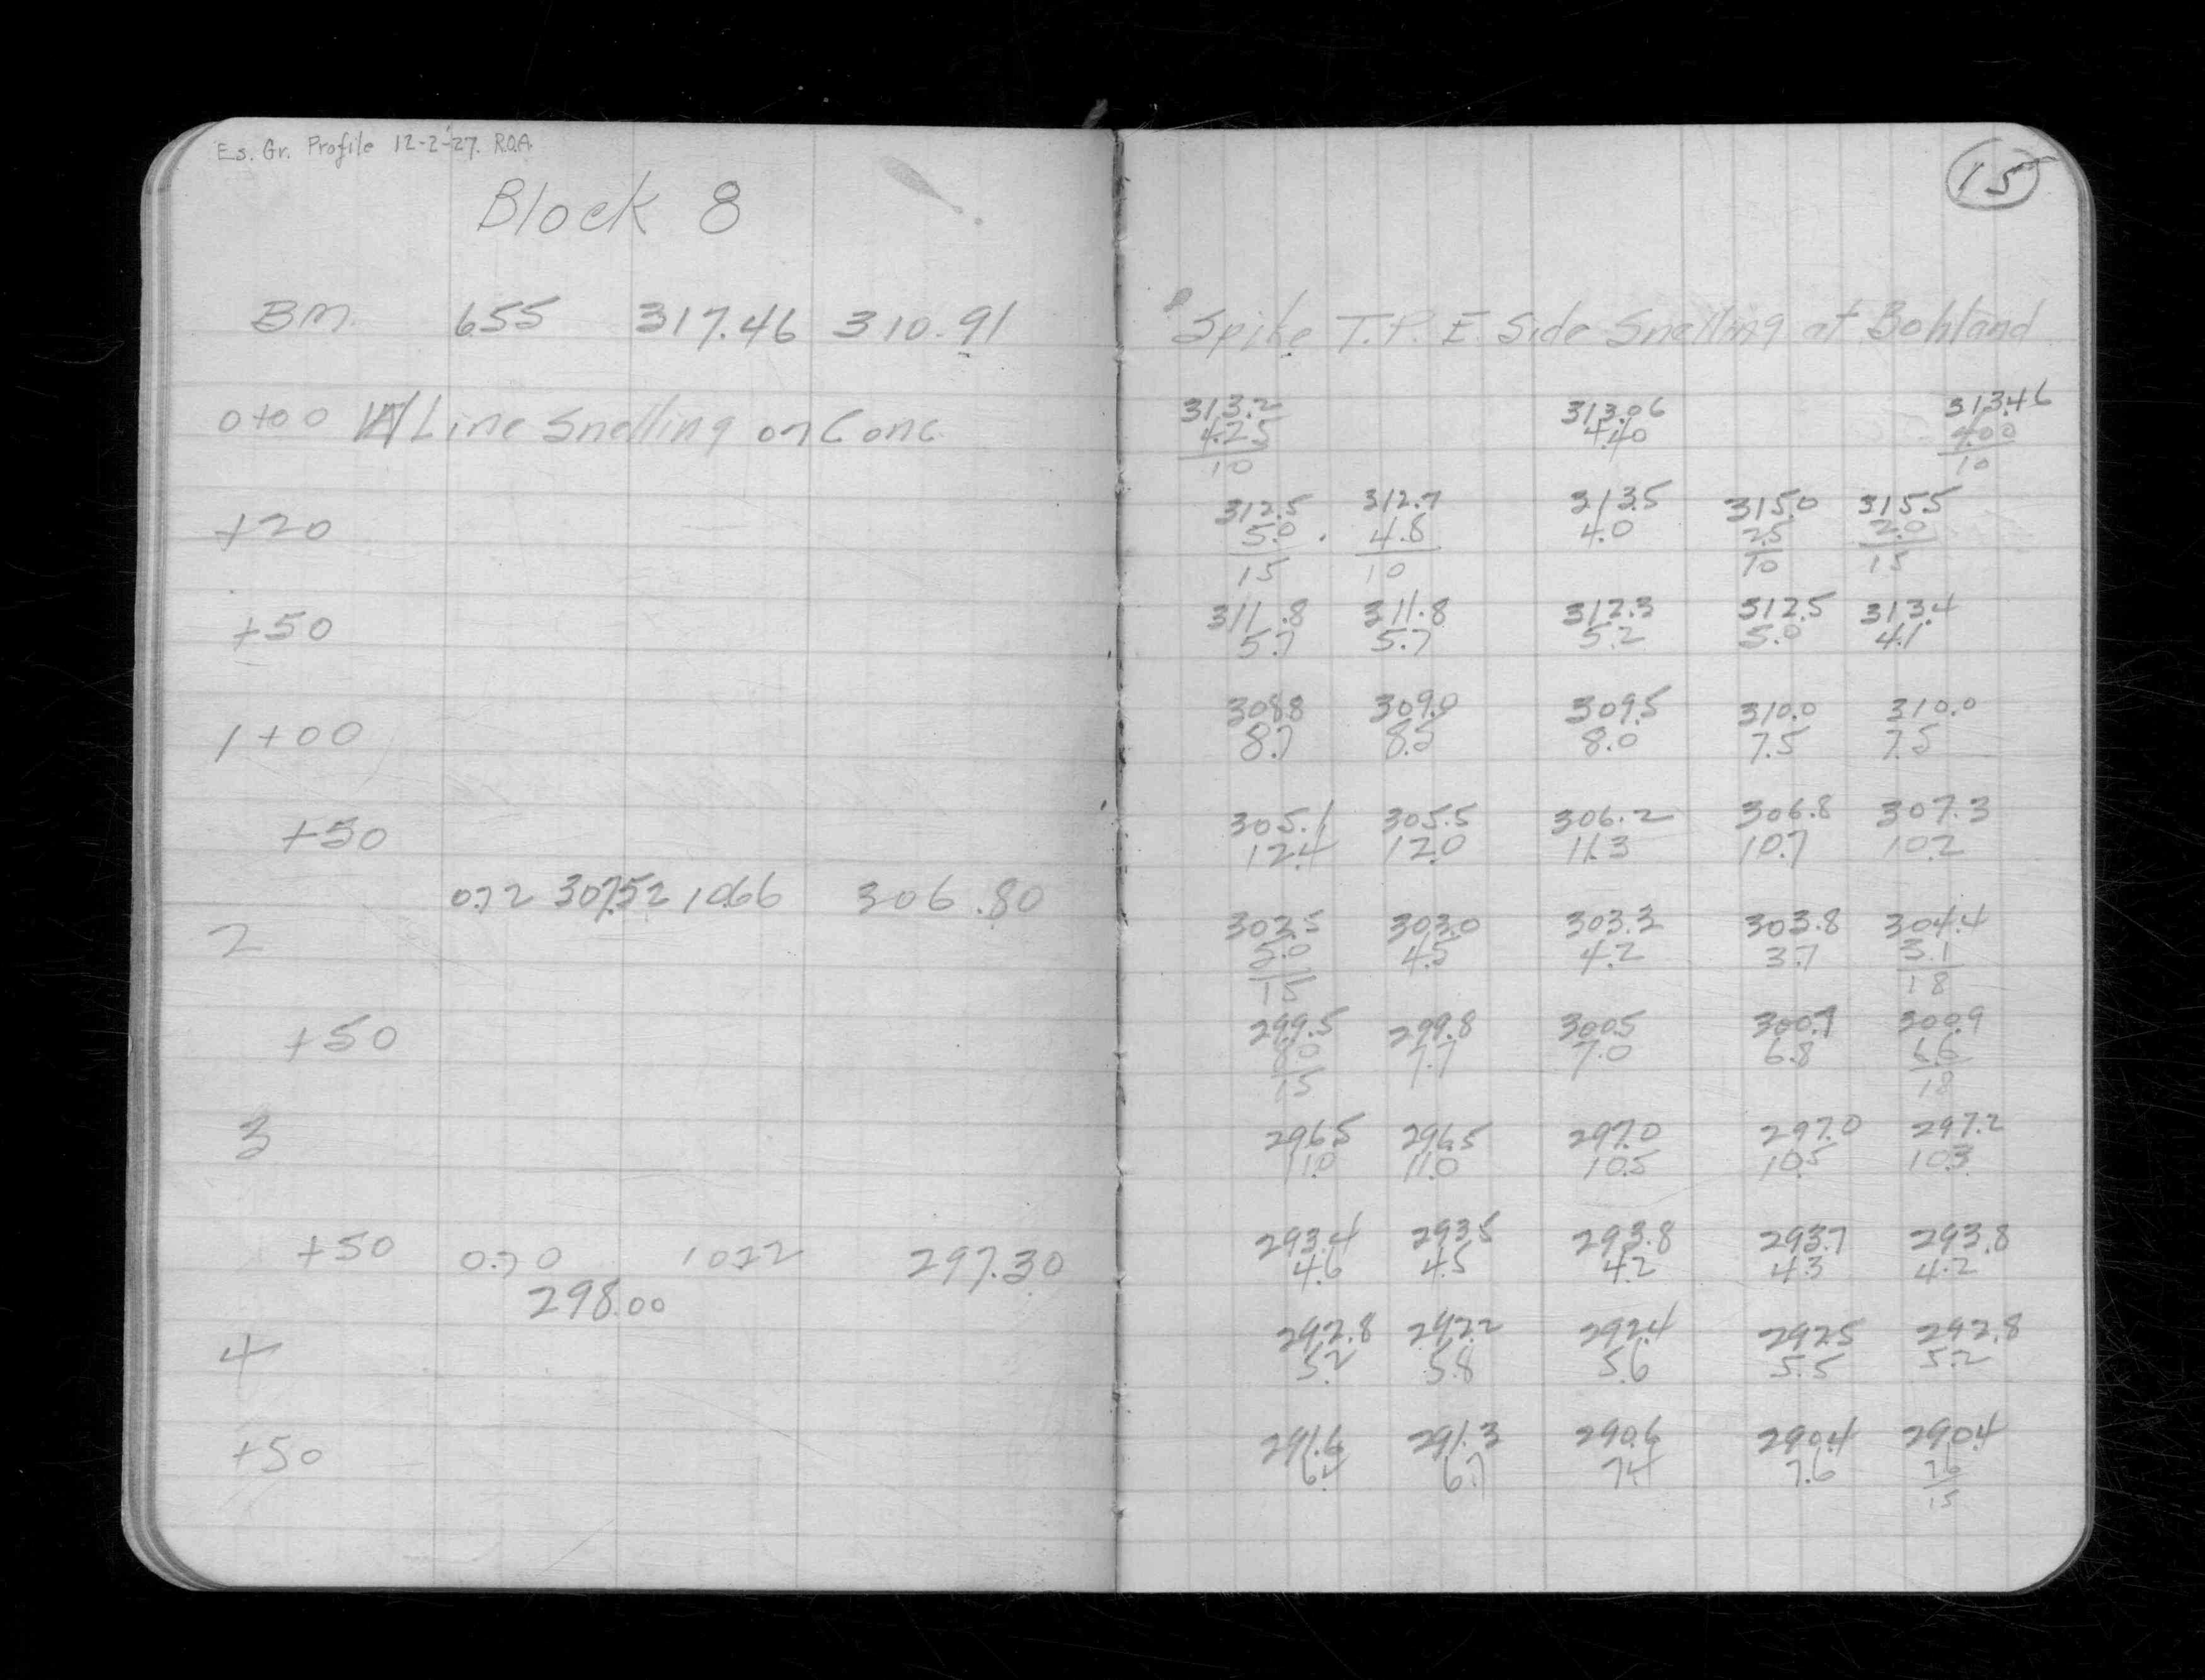 Es. Gr. Profile 12-2-'27. R.O.A.
Block 8
BM. 655 317.46 310.91
0+00 W Line Snelling on Conc.
+20
+50
1+00
+50
0.72 307.52 10.66 306.80
2
+50
3
+50 0.70 10.22 297.30
298.00
4
+50
15
Spike T.P. E. Side Snelling at Bohland
313.2 313.06 313.46
4.25 4.40 4.00
10 10
312.5 312.7 313.5 315.0 315.5
5.0 4.8 4.0 2.5 2.0
15 10 10 15
311.8 311.8 312.3 312.5 313.4
5.7 5.7 5.2 5.0 4.1
308.8 309.0 309.5 310.0 310.0
8.7 8.5 8.0 7.5 7.5
305.1 305.5 306.2 306.8 307.3
12.4 12.0 11.3 10.7 10.2
302.5 303.0 303.3 303.8 304.4
5.0 4.5 4.2 3.7 3.1
15 18
299.5 299.8 300.5 300.7 300.9
8.0 7.7 7.0 6.8 6.6
15 18
296.5 296.5 297.0 297.0 297.2
11.0 11.0 10.5 10.5 10.3
293.4 293.5 293.8 293.7 293.8
4.6 4.5 4.2 4.3 4.2
292.8 292.2 292.4 292.5 292.8
5.2 5.8 5.6 5.5 5.2
291.6 291.3 290.6 290.4 290.4
6.4 6.7 7.4 7.6 7.6
15